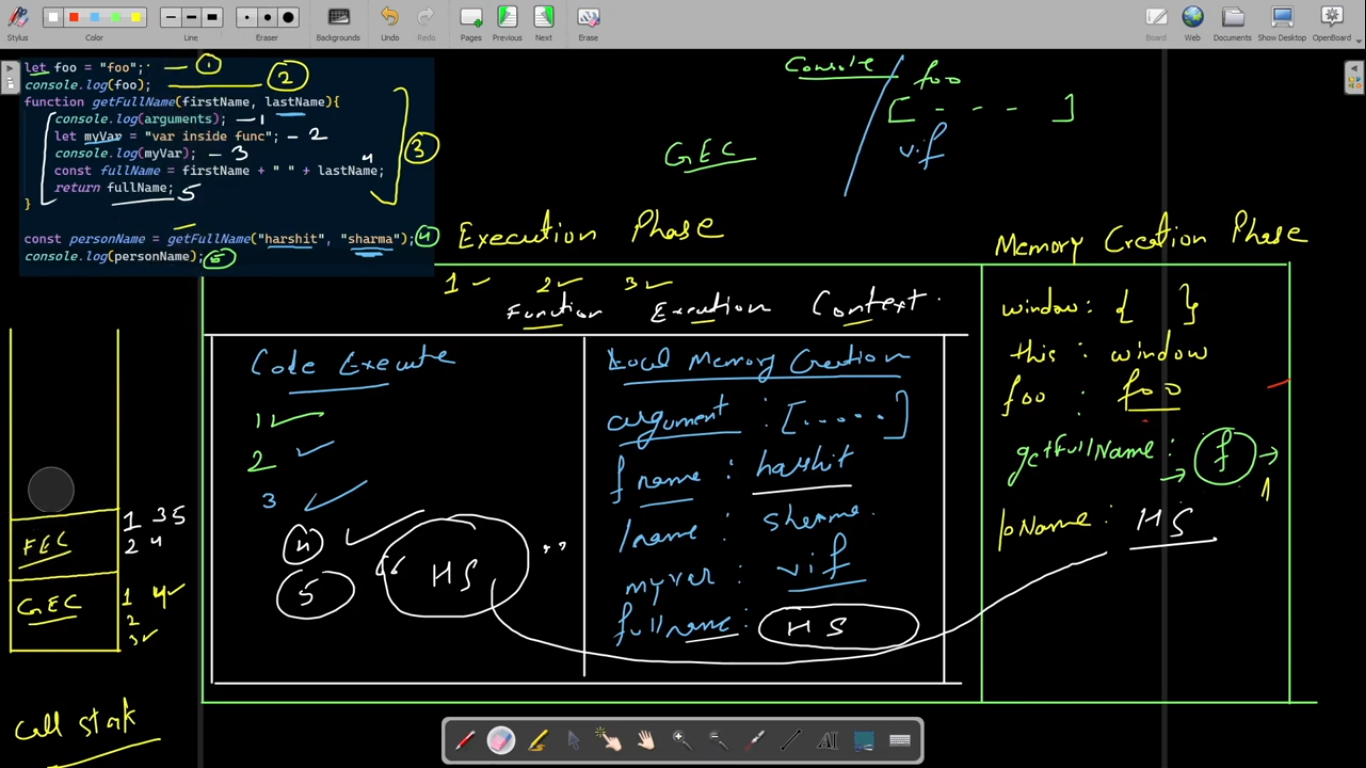 Stylus Color Line Eraser Backgrounds Undo Redo Pages Previous Next Erase Board Web Documents Show Desktop OpenBoard
let foo = "foo"; 1
console.log(foo); 2
function getFullName(firstName, lastName){
console.log(arguments); 1
let myVar = "var inside func"; 2
console.log(myVar); 3
const fullName = firstName + " " + lastName; 4
return fullName; 5
}
3
const personName = getFullName("harshit", "sharma"); 4
console.log(personName); 5
Console
foo
[ - - - ]
vif
GEC
Execution Phase
Memory Creation Phase
1 2 3
Function Execution Context.
Code Execute
1
2
3
4
5
"HS"
Local Memory Creation
argument : [......]
fname : harshit
lname : sharma.
myvar : vif
fullname : HS
window : { }
this : window
foo : foo
getFullName : f
1
pName : HS
FEC
1 3 5
2 4
GEC
1 4
2
3
Call stack
AI